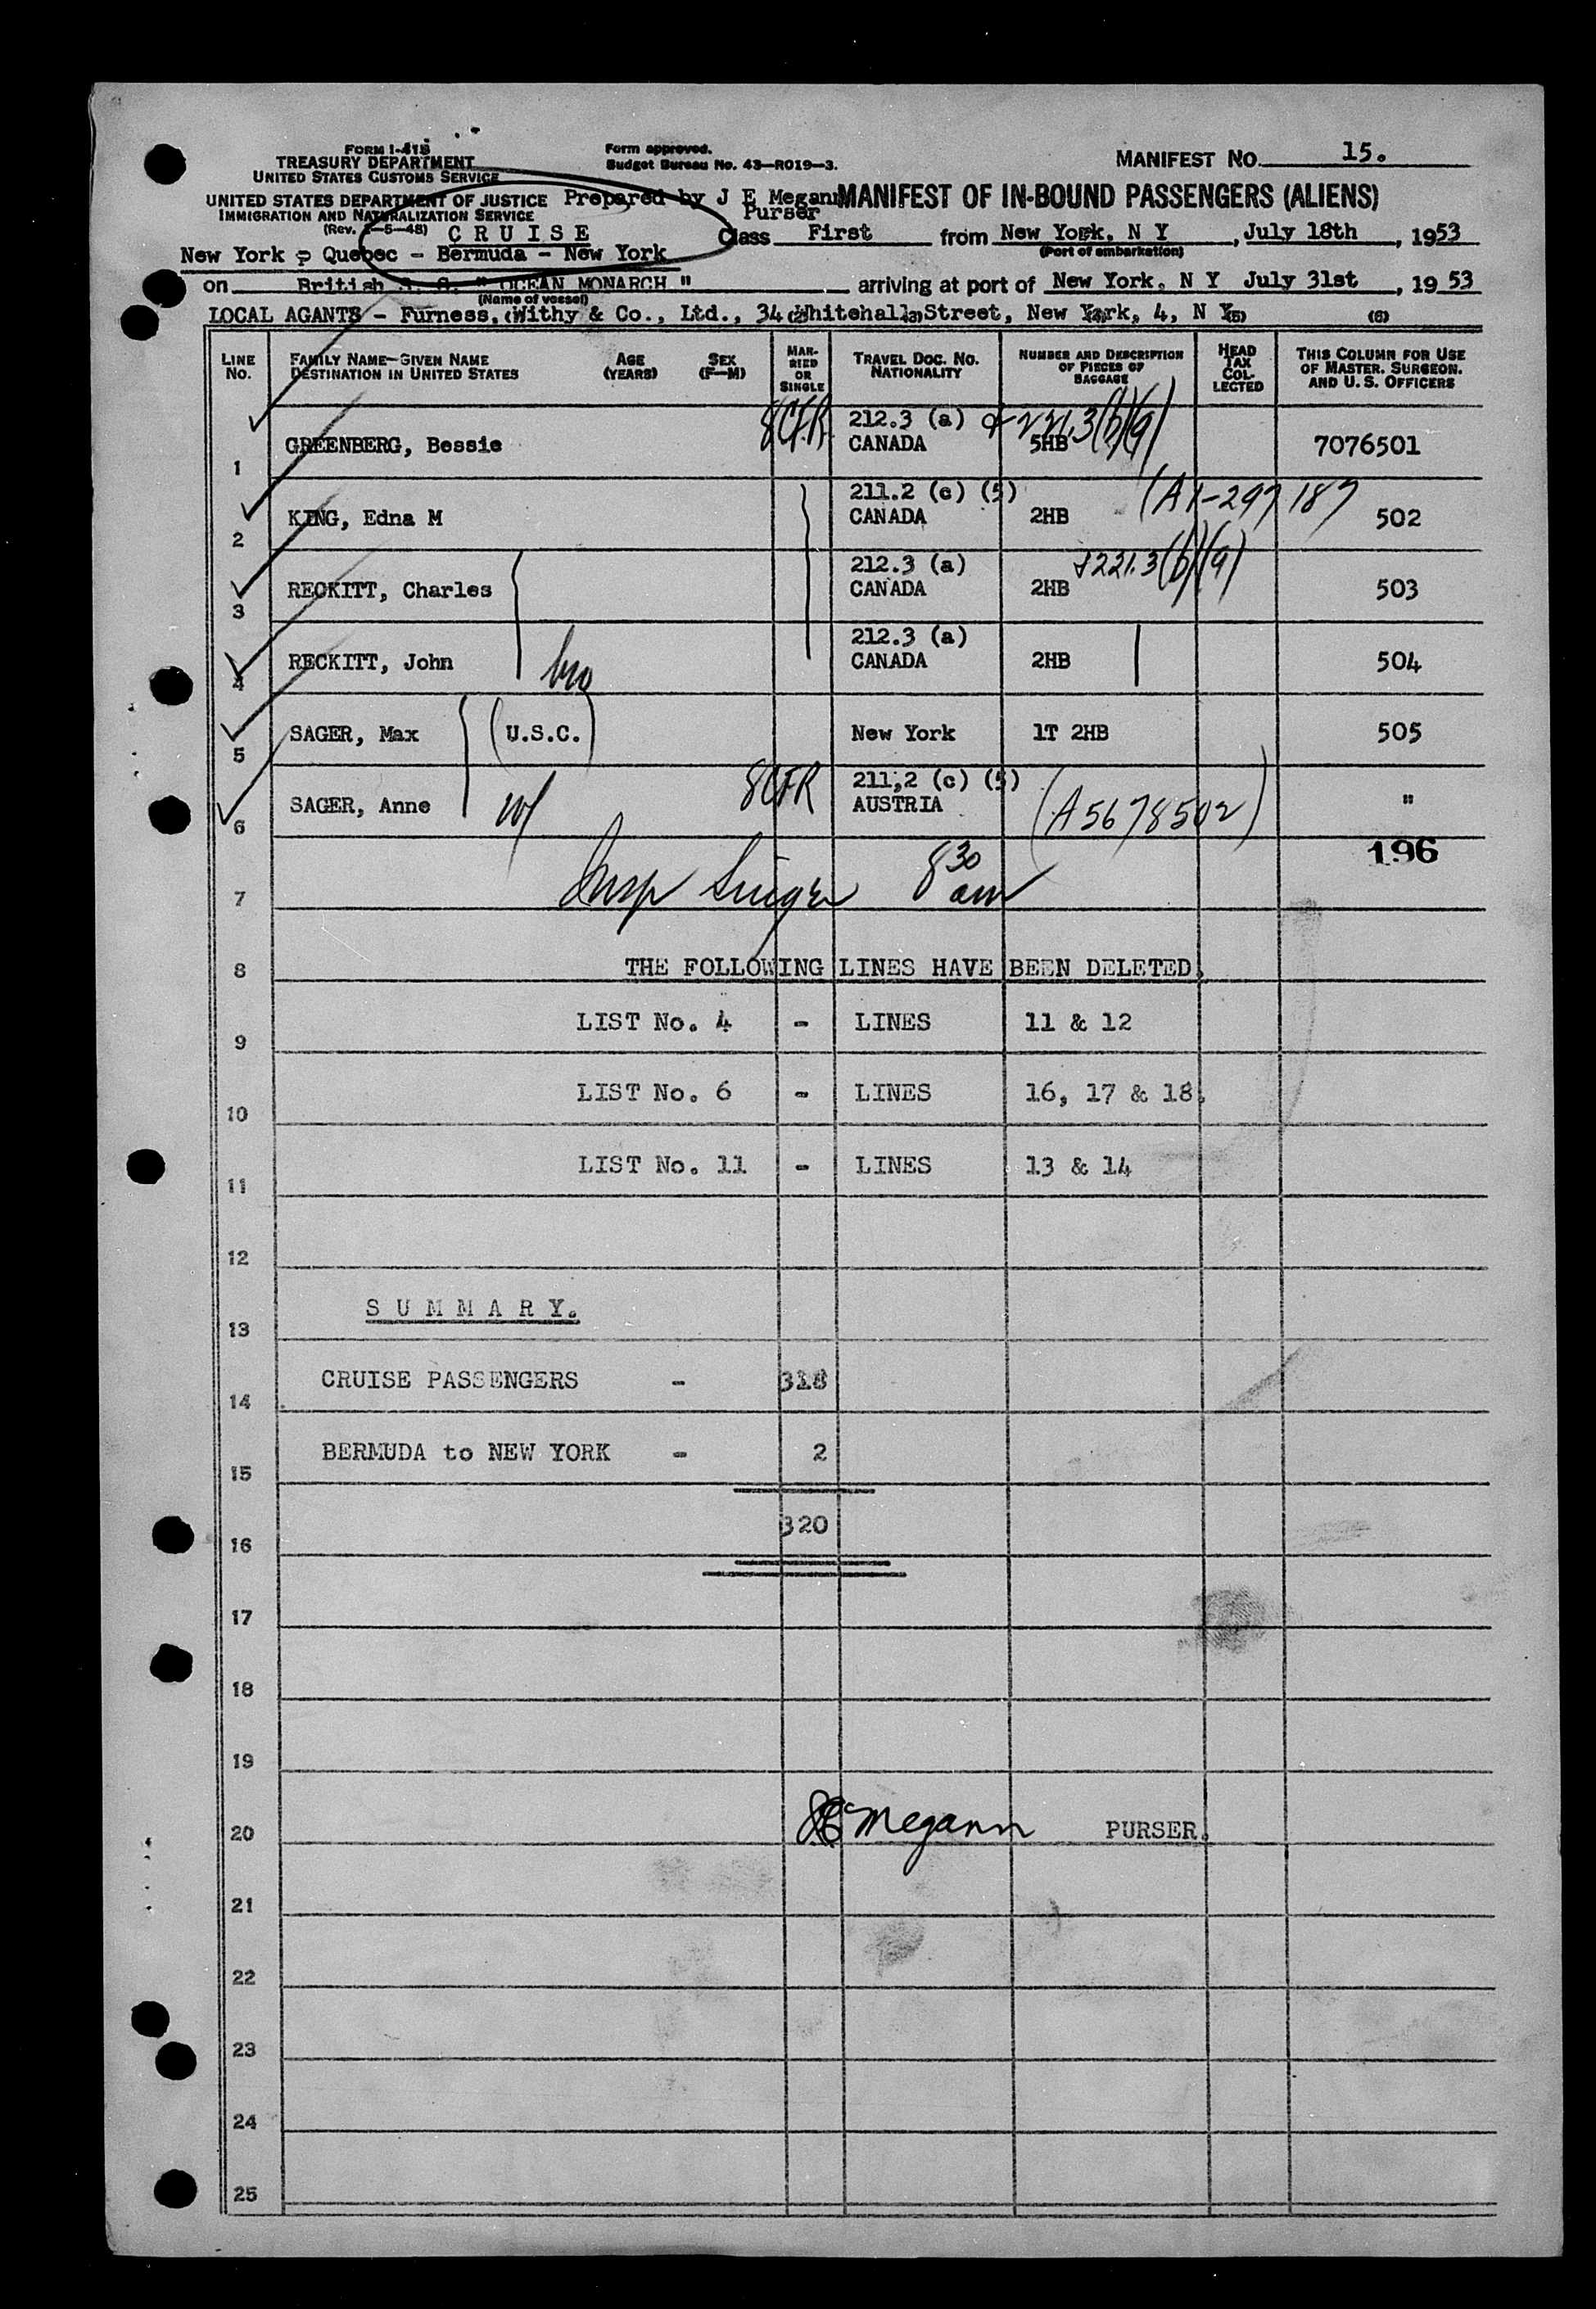 FORM I-418
TREASURY DEPARTMENT
UNITED STATES CUSTOMS SERVICE
Form approved.
Budget Bureau No. 43—R019—3.
MANIFEST No. 15.
UNITED STATES DEPARTMENT OF JUSTICE
IMMIGRATION AND NATURALIZATION SERVICE
Prepared by J E Megann
Purser
MANIFEST OF IN-BOUND PASSENGERS (ALIENS)
C R U I S E
Class First from New York, N Y, July 18th, 1953
(Port of embarkation)
New York - Quebec - Bermuda - New York
on British S. S. " OCEAN MONARCH " arriving at port of New York, N Y July 31st, 1953
(Name of vessel)
LOCAL AGANTS - Furness, Withy & Co., Ltd., 34 Whitehall Street, New York, 4, N Y (5) (6)
LINE No. FAMILY NAME—GIVEN NAME DESTINATION IN UNITED STATES AGE (YEARS) SEX (F—M) MARRIED OR SINGLE TRAVEL DOC. NO. NATIONALITY NUMBER AND DESCRIPTION OF PIECES OF BAGGAGE HEAD TAX COLLECTED THIS COLUMN FOR USE OF MASTER, SURGEON, AND U. S. OFFICERS
8CFR 212.3 (a) & 221.3(b)(9)
1 GREENBERG, Bessie CANADA 5HB 7076501
211.2 (c) (5) (A1-297187
2 KING, Edna M CANADA 2HB 502
212.3 (a) &221.3(b)(9)
3 RECKITT, Charles CANADA 2HB 503
212.3 (a)
4 RECKITT, John bro CANADA 2HB 504
5 SAGER, Max (U.S.C.) New York 1T 2HB 505
8CFR 211,2 (c) (5)
6 SAGER, Anne w/ AUSTRIA (A5678502) "
196
7 Insp Singer 8 30 am
8 THE FOLLOWING LINES HAVE BEEN DELETED.
9 LIST No. 4 - LINES 11 & 12
10 LIST No. 6 - LINES 16, 17 & 18.
11 LIST No. 11 - LINES 13 & 14
12
13 S U M M A R Y.
14 CRUISE PASSENGERS - 318
15 BERMUDA to NEW YORK - 2
16 320
17
18
19
20 JE Megann PURSER.
21
22
23
24
25